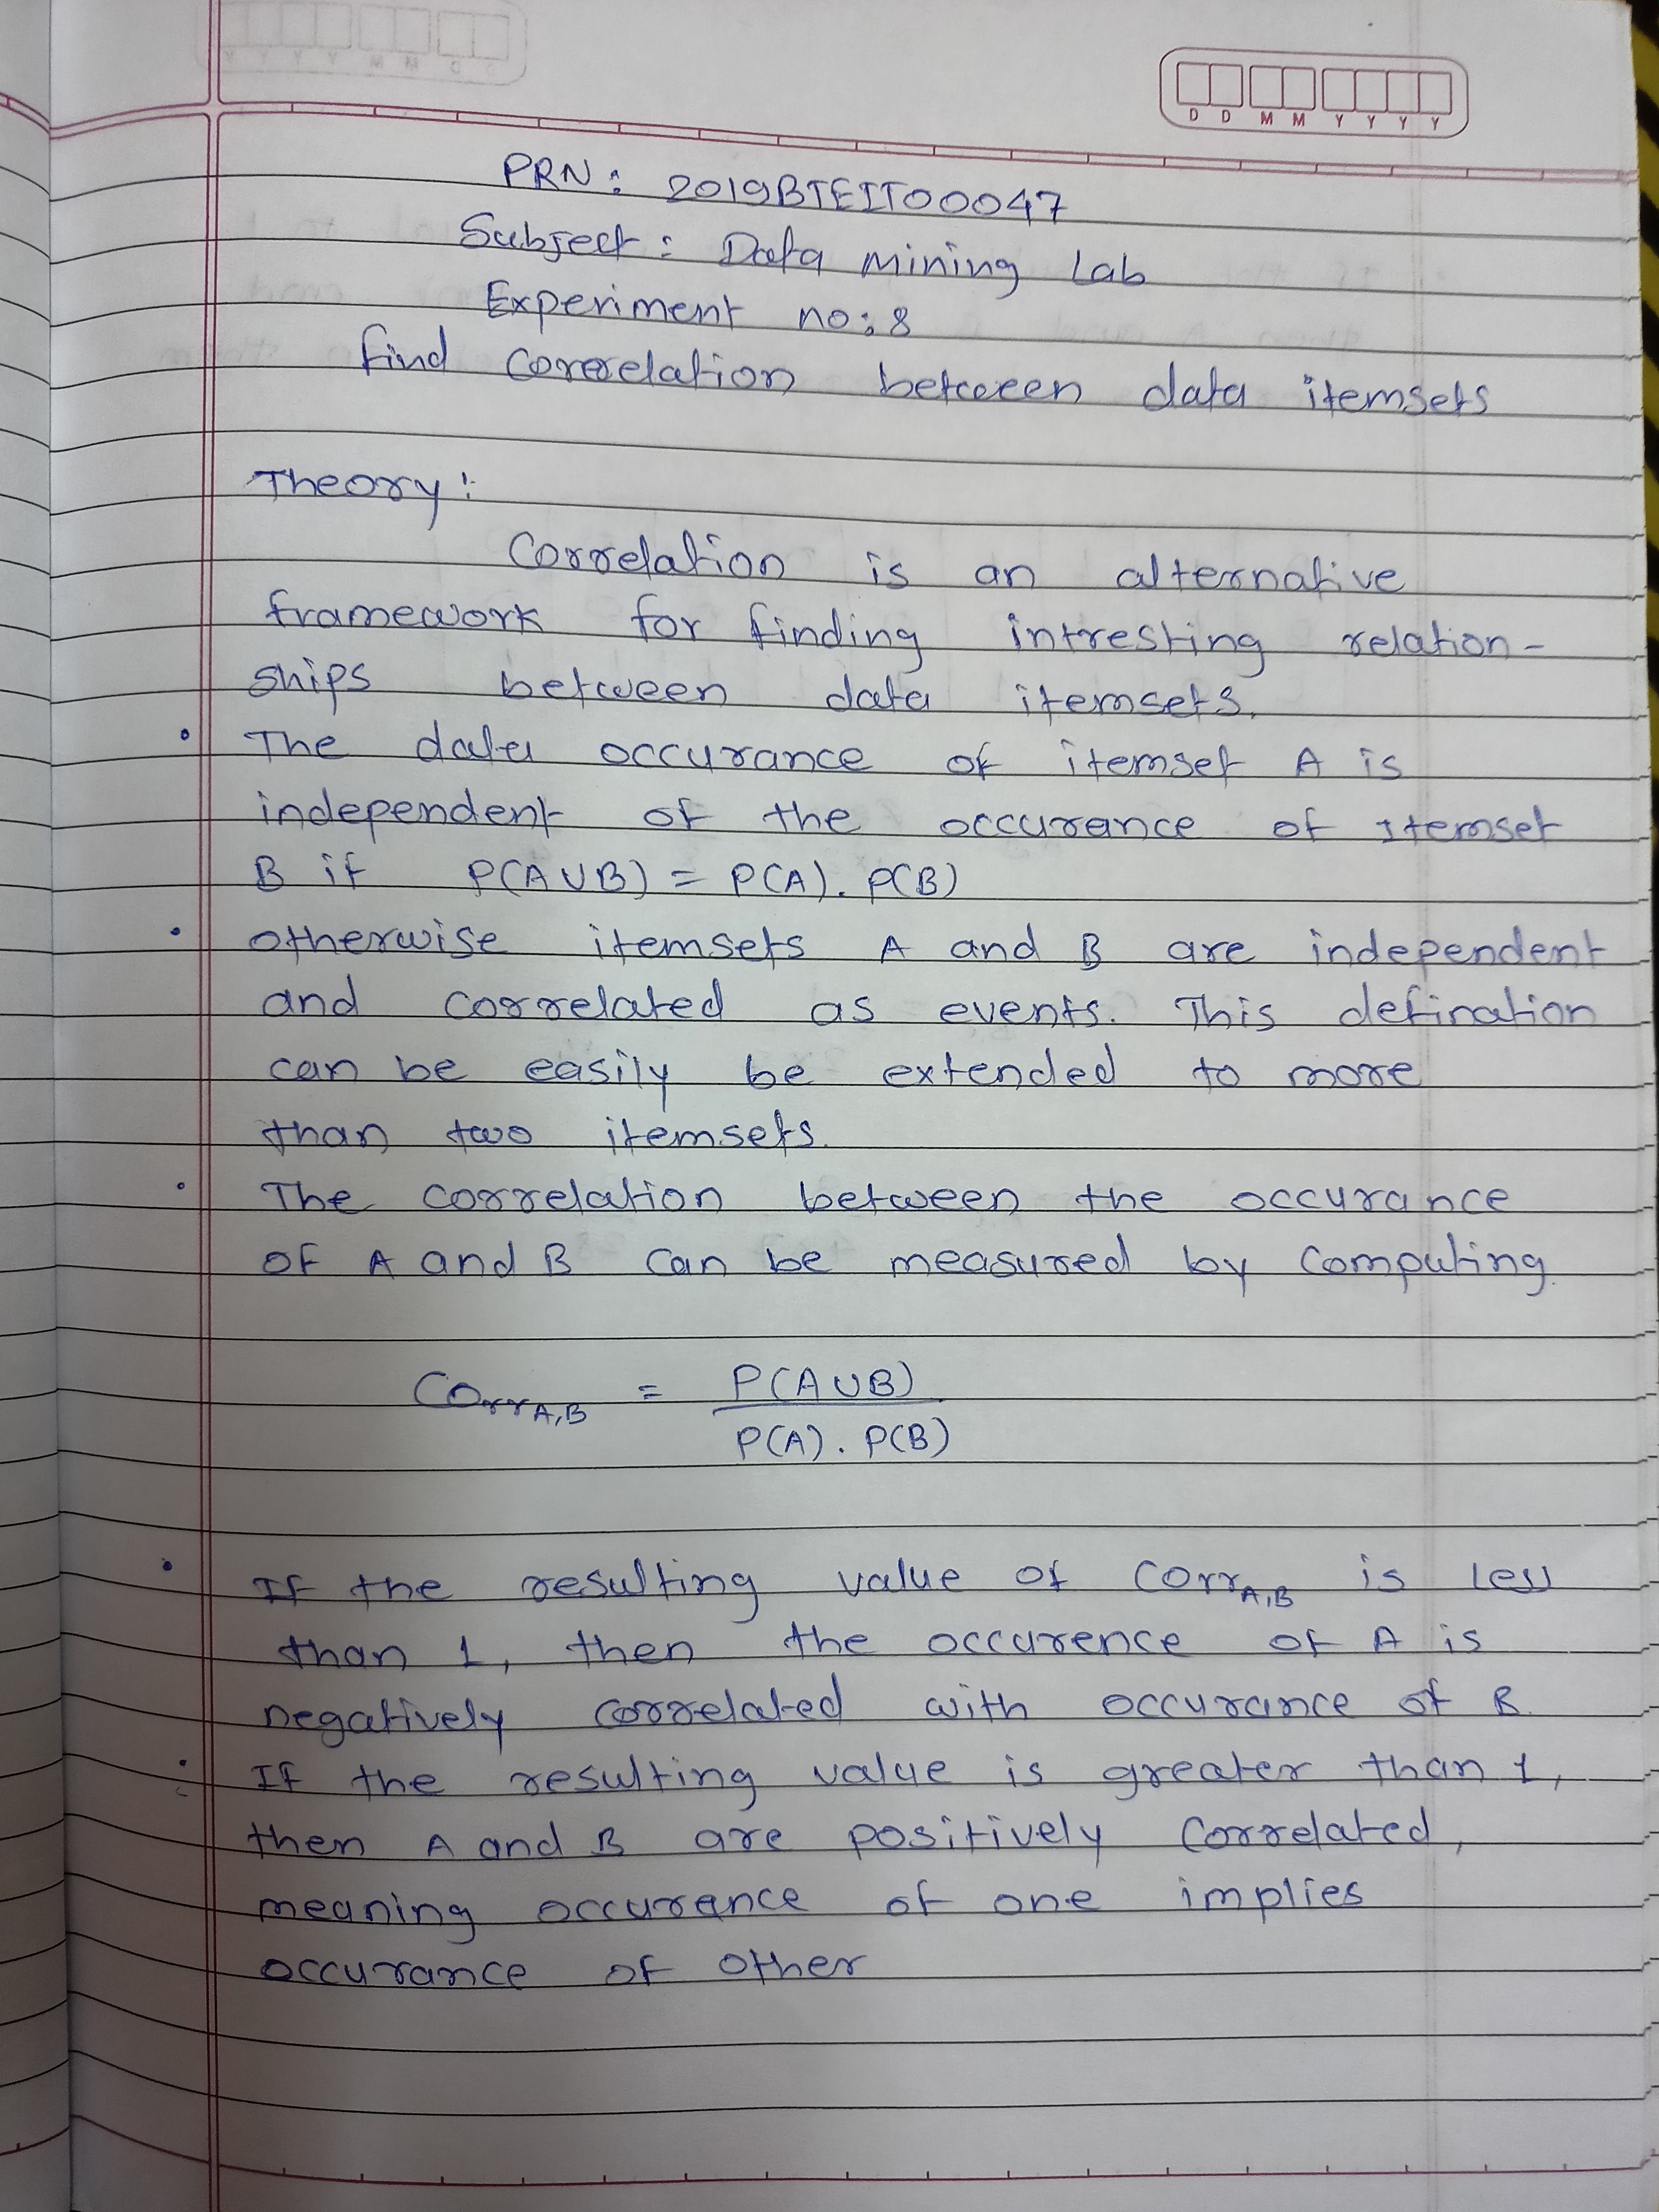 D D M M Y Y Y Y
PRN: 2019BTEIT00047
Subject: Data mining Lab
Experiment no: 8
find correlation between data itemsets
Theory:
Correlation is an alternative
framework for finding intresting relation-
ships between data itemsets.
• The data occurance of itemset A is
independent of the occurance of itemset
B if P(A∪B) = P(A). P(B)
• otherwise itemsets A and B are independent
and correlated as events. This defination
can be easily be extended to more
than two itemsets.
• The correlation between the occurance
of A and B can be measured by computing.
CorrA,B = P(A∪B)
P(A). P(B)
• If the resulting value of CorrA,B is less
than 1, then the occurence of A is
negatively correlated with occurance of B.
• If the resulting value is greater than 1,
then A and B are positively correlated,
meaning occurance of one implies
occurance of other